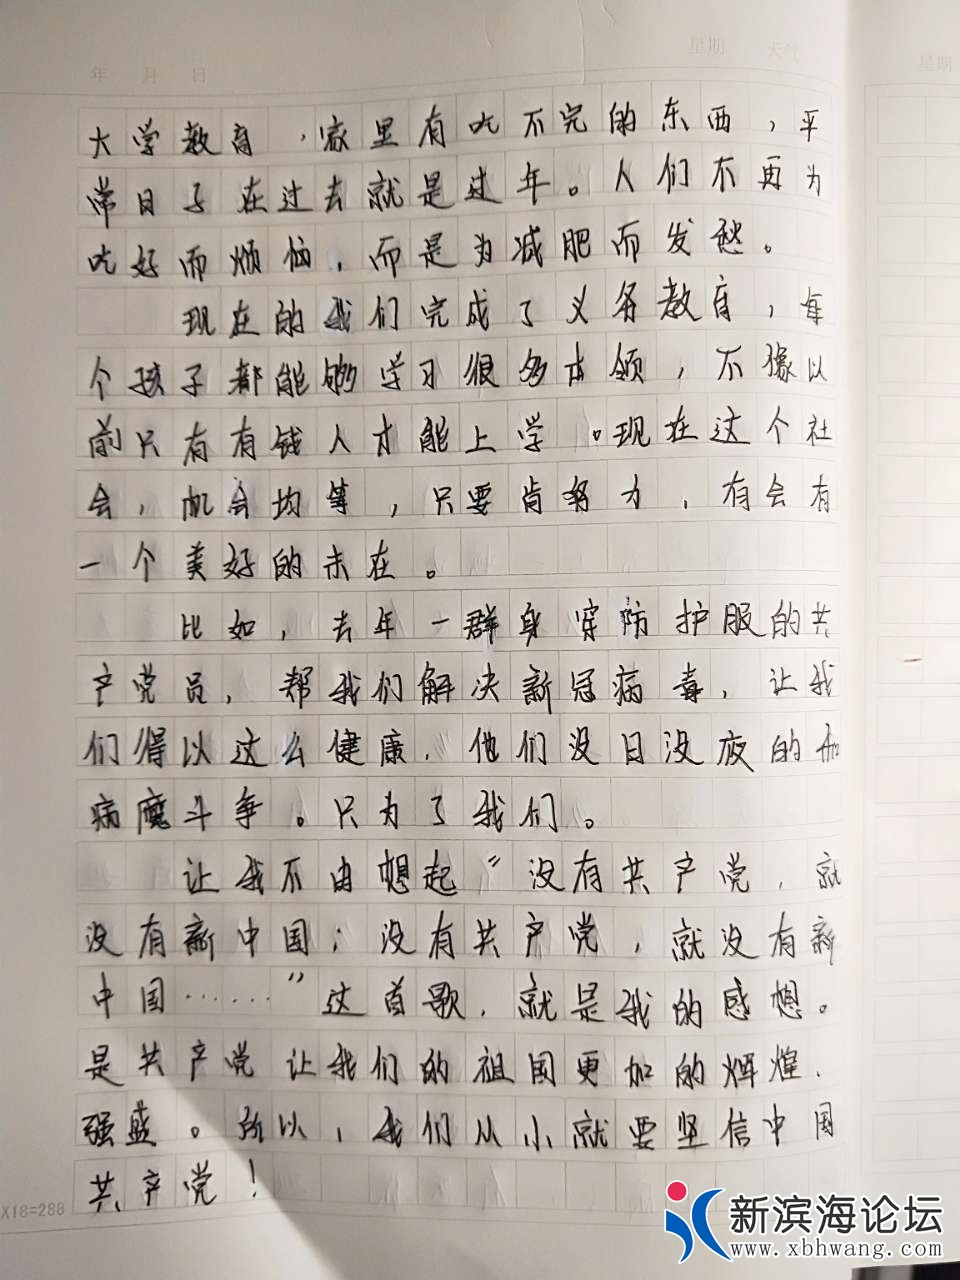 年 月 日 星期 天气
星期
大学教育，家里有吃不完的东西，平
常日子在过去就是过年。人们不再为
吃好而烦恼，而是为减肥而发愁。
现在的我们完成了义务教育，每
个孩子都能够学习很多本领，不像以
前只有有钱人才能上学。现在这个社
会，机会均等，只要肯努力，有会有
一个美好的未在。
比如，去年一群身穿防护服的共
产党员，帮我们解决新冠病毒，让我
们得以这么健康，他们没日没夜的和
病魔斗争。只为了我们。
让我不由想起“没有共产党，就
没有新中国；没有共产党，就没有新
中国……”这首歌，就是我的感想。
是共产党让我们的祖国更加的辉煌、
强盛。所以，我们从小就要坚信中国
共产党！
X18=288
新滨海论坛
www.xbhwang.com